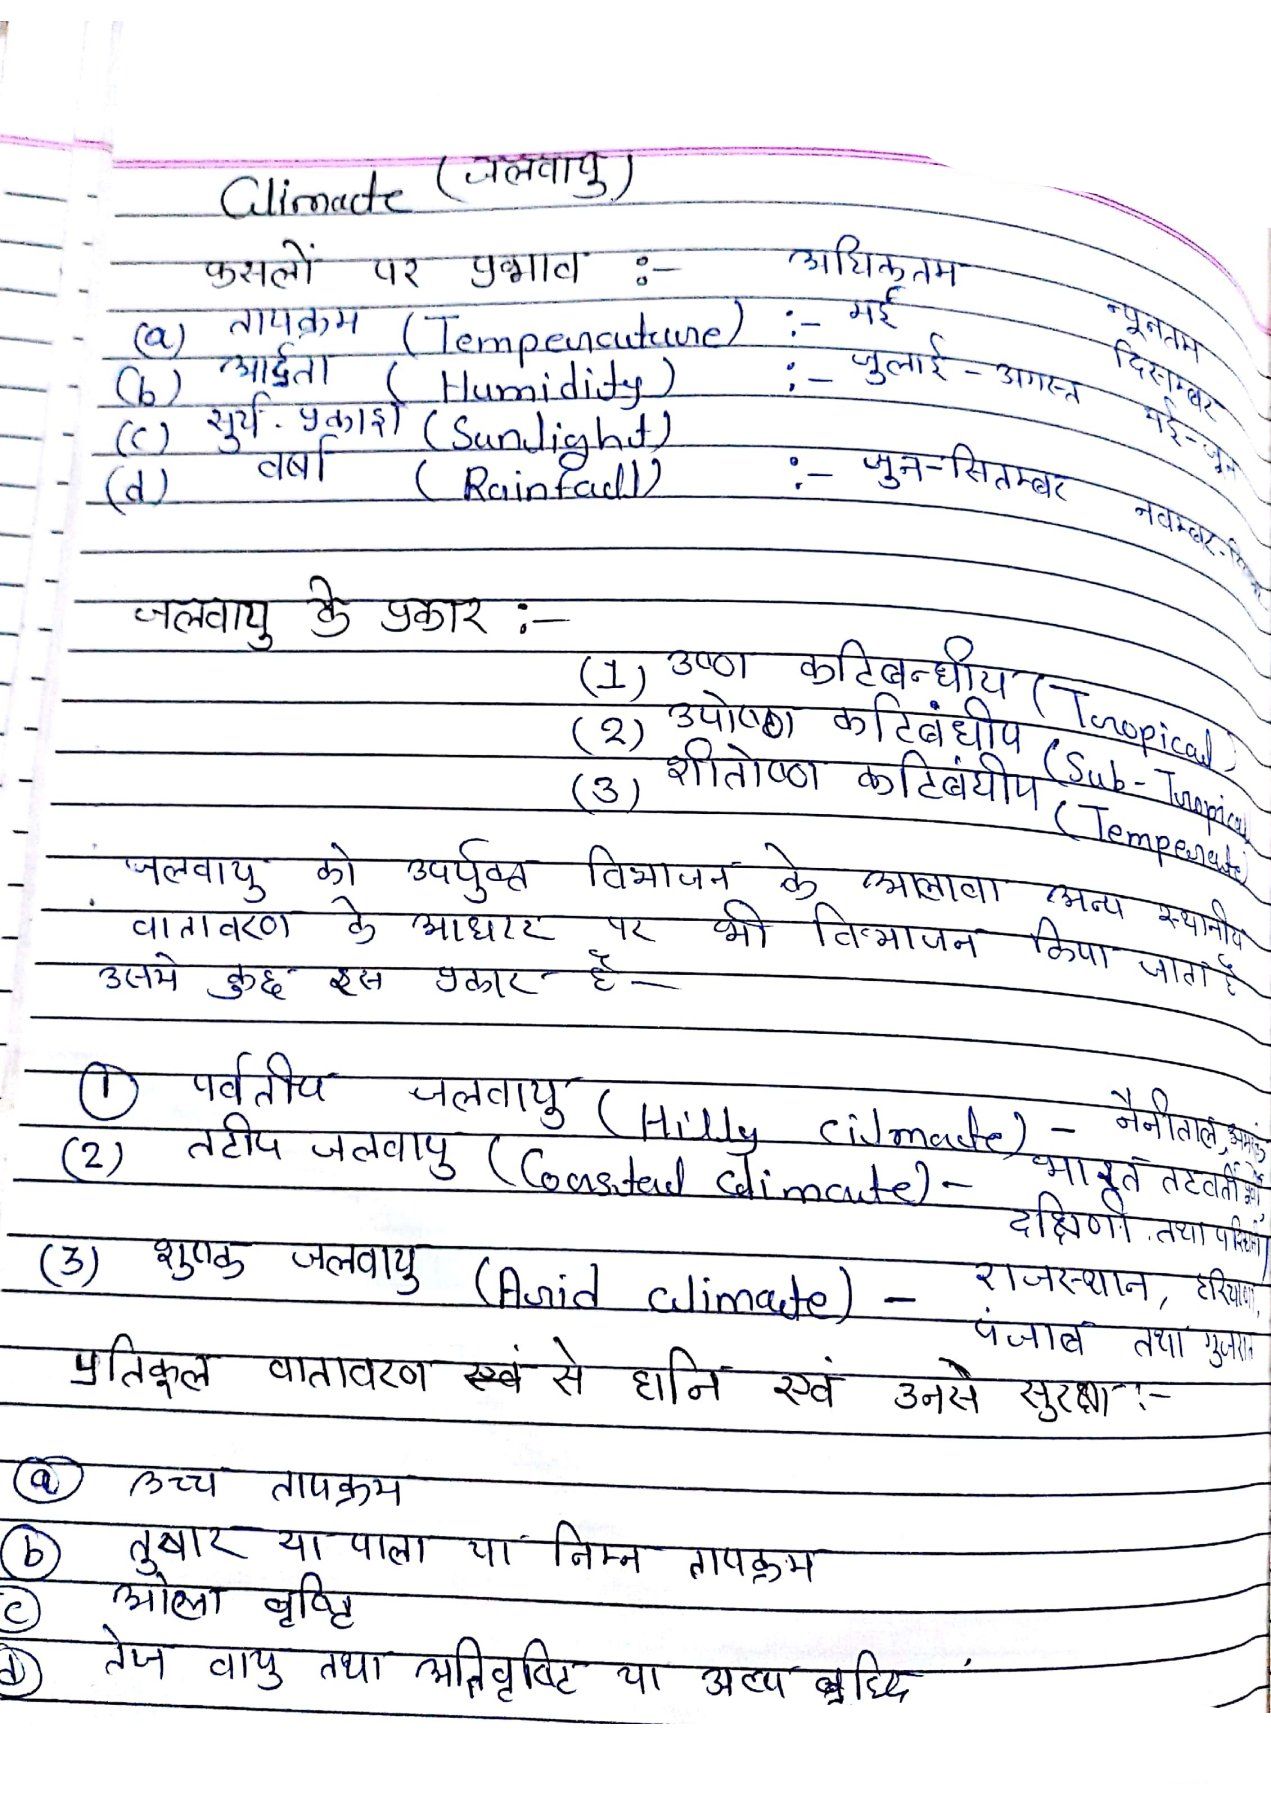 Climate (जलवायु)
फसलों पर प्रभाव :- अधिकतम न्यूनतम
(a) तापक्रम (Temperature) :- मई दिसम्बर
(b) आर्द्रता (Humidity) :- जुलाई - अगस्त मई-जून
(c) सूर्य प्रकाश (Sunlight)
(d) वर्षा (Rainfall) :- जुन-सितम्बर नवम्बर-
जलवायु के प्रकार :-
(1) उष्ण कटिबन्धीय (Tropical)
(2) उपोष्ण कटिबंधीय (Sub-Tropical
(3) शीतोष्ण कटिबंधीय (Temperate
जलवायु को उपर्युक्त विभाजन के अलावा अन्य स्थानीय
वातावरण के आधार पर भी विभाजन किया जाता है
उसमे कुछ इस प्रकार है -
(1) पर्वतीय जलवायु (Hilly cilmate) - नैनीताल,
(2) तटीय जलवायु (Coastal climate) - भारत तटवर्ती
दक्षिणी तथा पश्चिमी
(3) शुष्क जलवायु (Arid climate) - राजस्थान, हरियाणा,
पंजाब तथा गुजरात
प्रतिकूल वातावरण एवं से हानि एवं उनसे सुरक्षा :-
(a) उच्च तापक्रम
(b) तुषार या पाला या निम्न तापक्रम
(c) ओला वृष्टि
(d) तेज वायु तथा अतिवृष्टि या अल्प